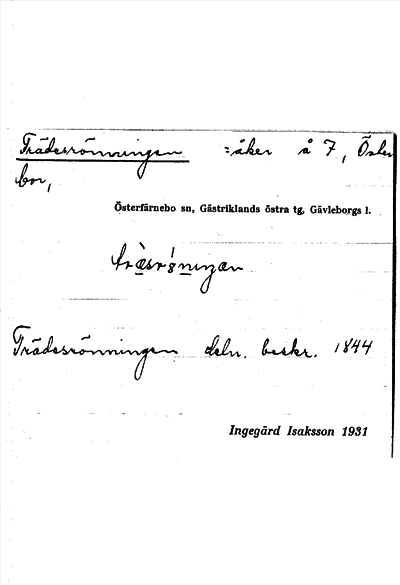 Trädesrönningen =åker å 7, Öster
bor,
Österfärnebo sn, Gästriklands östra tg, Gävleborgs l.
Trädesrönningen deln. beskr. 1844
Ingegärd Isaksson 1931